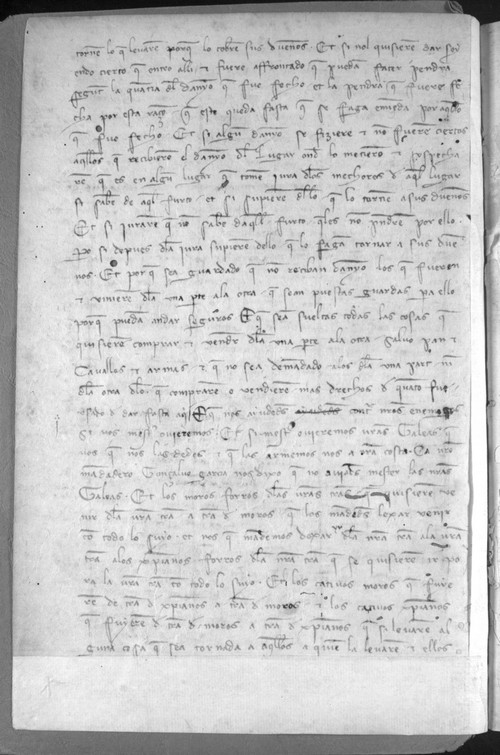 torne lo q̃ levarẽ porq̃ lo cobrẽ sus duenos. Et si nol quisierẽ dar
endo cierto q̃ entro alli & fuere affrontado q̃ puedã fazer pendra
segunt la quãtia dl danyo q̃ fue fecho et la pendra q̃ fuere fe
cha por esta razõ q̃ este queda fasta q̃ se faga emieda por aqllo
q̃ fue fecho Et si algũ danyo se fiziere & no fueren ciertos
aqllos q̃ recibierõ el danyo dl lugar ond lo metierõ & sospecha
rẽ q̃ es en algũ lugar q̃ tomẽ iura dlos mechores d aql lugar
si sabẽ de aql furto. et si supierẽ dllo q̃ lo tornẽ a sus duenos
Et si iurarẽ q̃ no sabẽ daql furto qles no pndrẽ por ello.
Po si depues dla iura supierẽ dello q̃ lo fagã tornar a sus due
nos. Et por q̃ sea guardado q̃ no reciban danyo los q̃ fueren
& vinierẽ dla una pte ala otra. q̃ sean puestas guardas pa ello
porq̃ puedã andar seguros Et q̃ sea sueltas todas las cosas q̃
quisierẽ comprar & vendr dla una pte ala otra Salvo pan &
Cavallos & armas & q̃ no sea demãdado alos dla una part nĩ
dla otra dlo q̃ comprarẽ o vendierẽ mas drechos d quãto fue
usado d dar fasta aqi Et q̃ nos aiudedes cont nros enemigos
Si vos mest ovieremos. Et si mest ovieremos vras Galeas q̃
vos q̃ nos las dedes & q̃ las armemos nos a nra costa. Ca nro
mãdadero Gonçalvo garcia nos dixo q̃ no aviodes mester las nras
Galeas. Et los moros forros dlas vras tras quisierẽ ve
nir dla vra tra a tra d moros q̃ los mãdedes lexar venir
cõ todo lo suyo. et nos q̃ mãdemos dexar dla nra tra ala vra
tra alos xpianos forros dla nra tra q̃ se quisierẽ ir po
ra la vra tra cõ todo lo suio. Et los cativos moros q̃ fuye
rẽ de tra d xpianos a tra d moros & los cativos xpianos
q̃ fuyerẽ d tra d moros a tra d xpianos q̃ si levarẽ al
guna cosa q̃ sea tornada a aqllos a quiẽ la levarẽ & ellos